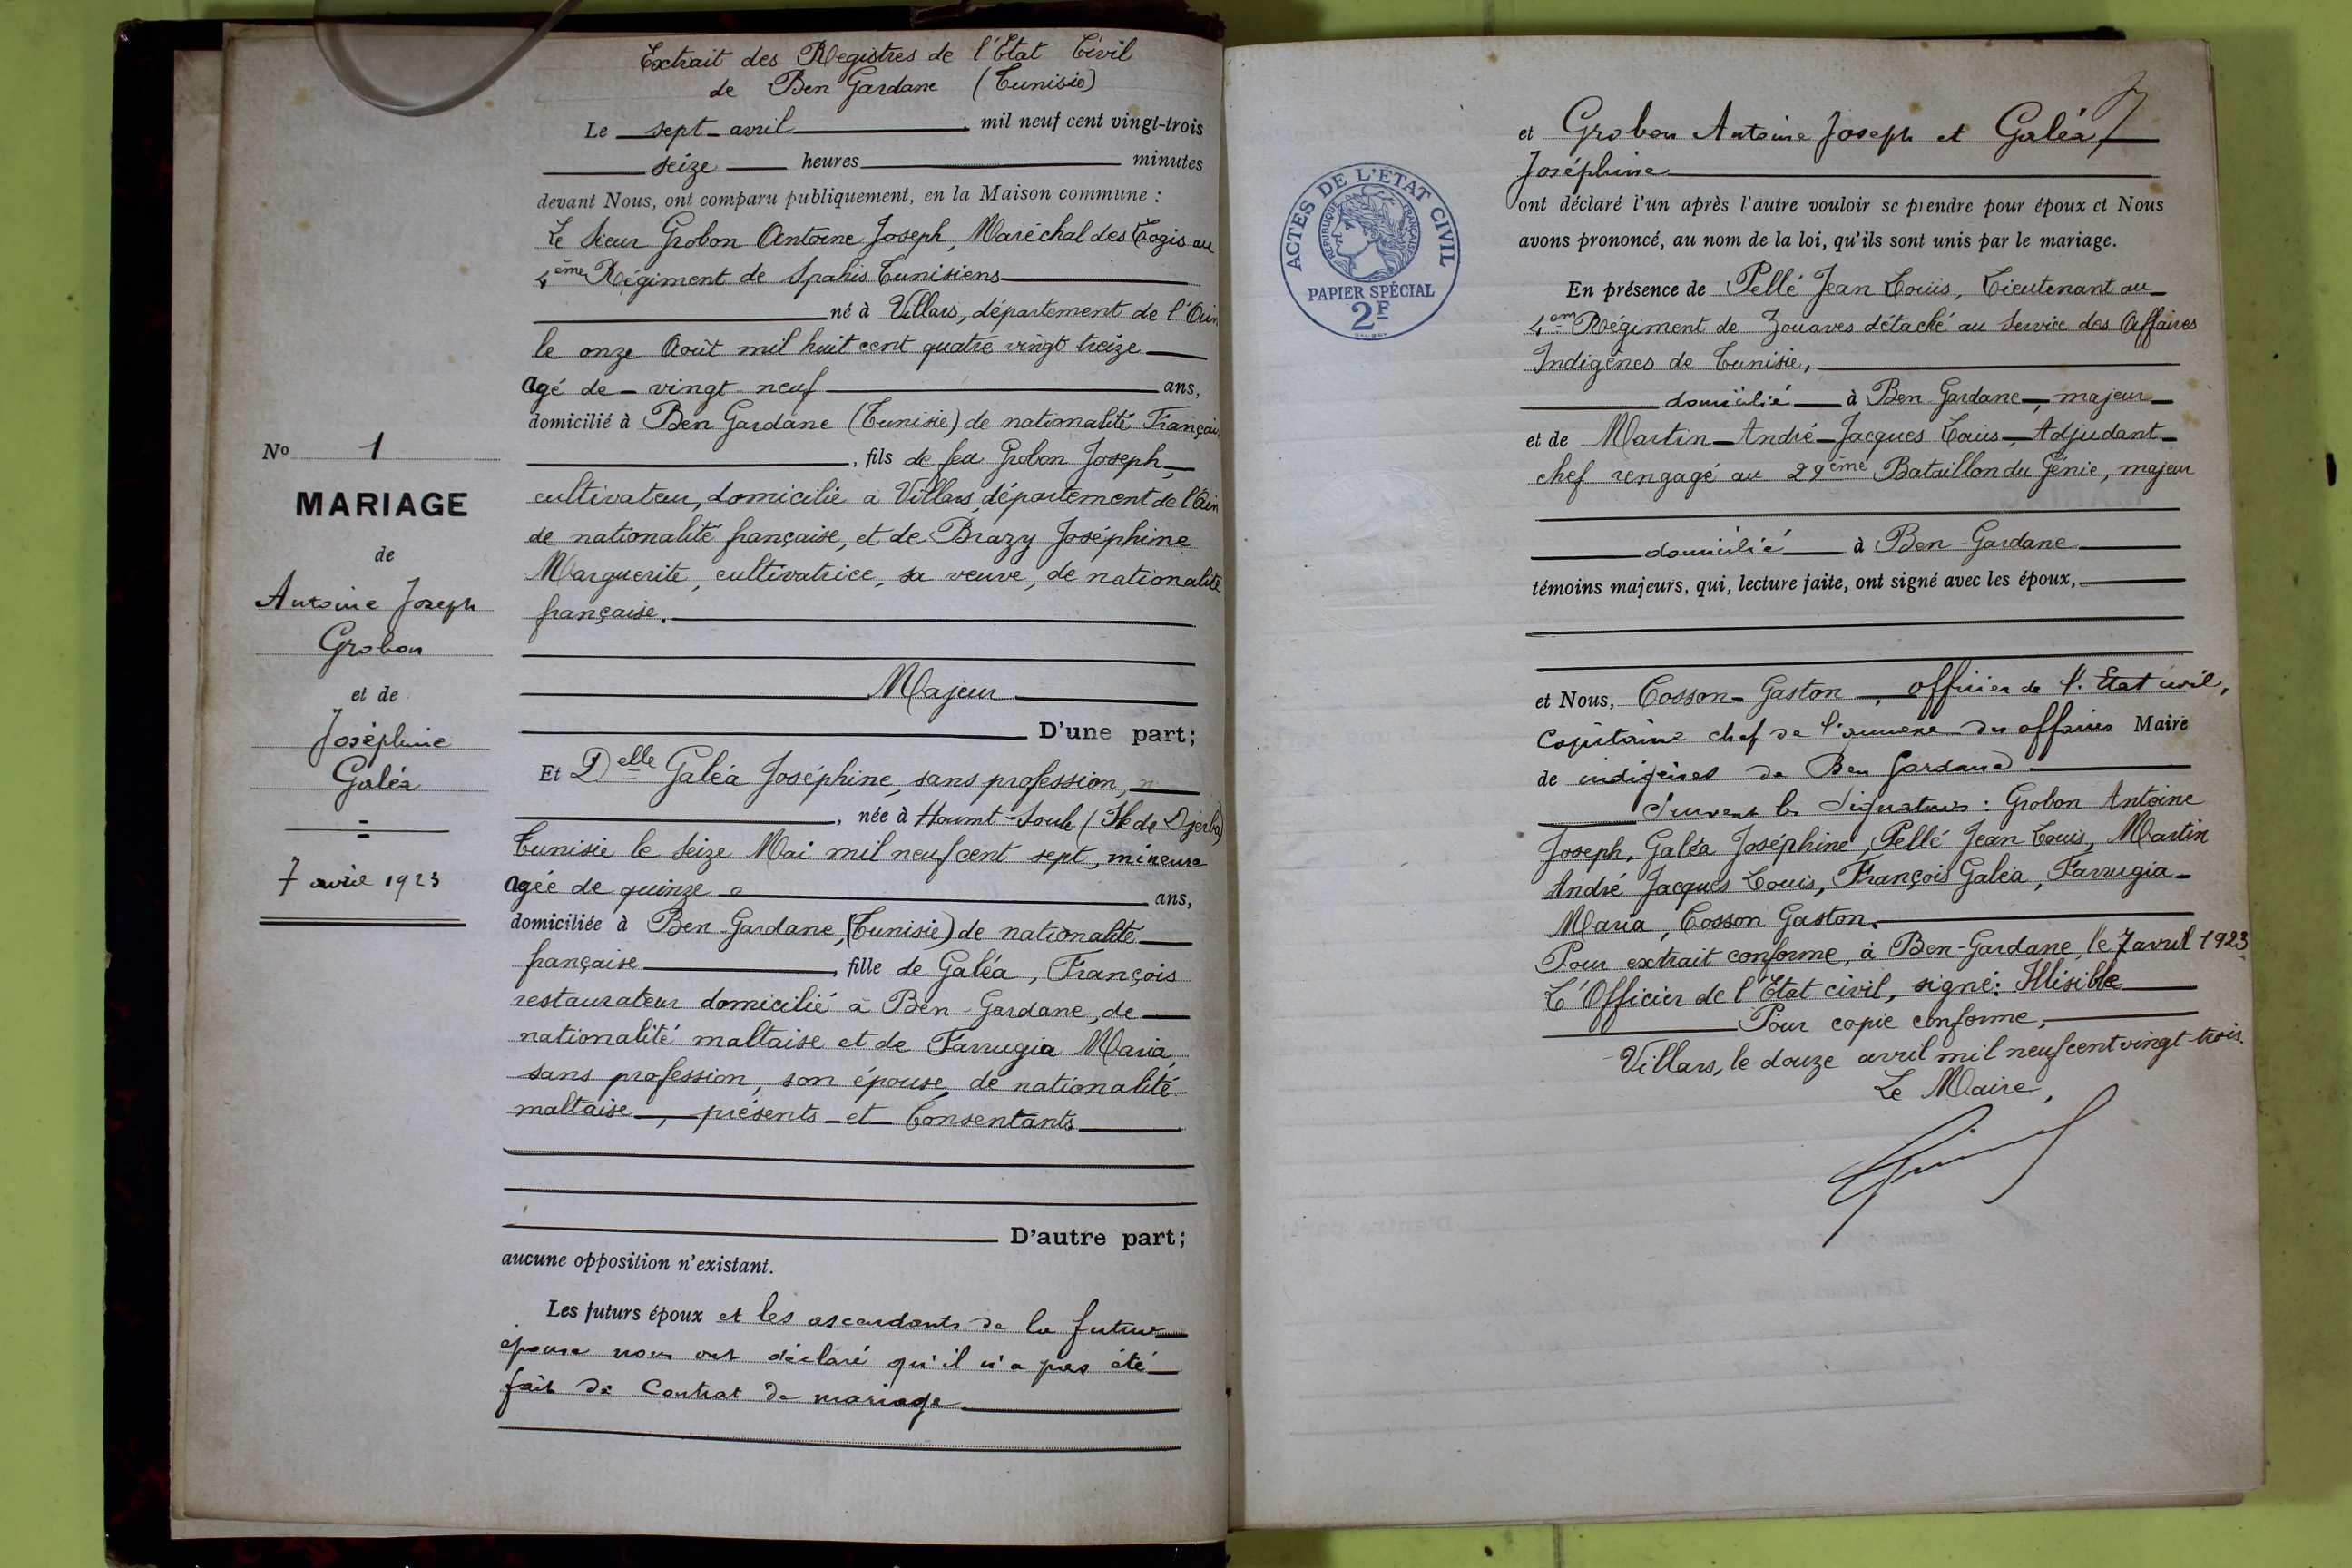 Extrait des Registres de l'Etat Civil
de Ben Gardane (Tunisie)
Le sept avril mil neuf cent vingt-trois
seize heures minutes
devant Nous, ont comparu publiquement, en la Maison commune :
Le Sieur Grobon Antoine Joseph, Maréchal des Logis au
4ème Régiment de Spahis Tunisiens
né à Villars, département de l'Ain
le onze Août mil huit cent quatre vingt treize
Agé de vingt neuf ans,
domicilié à Ben Gardane (Tunisie) de nationalité Française
, fils de feu Grobon Joseph,
cultivateur, domicilié à Villars, département de l'Ain
de nationalité française, et de Brazy Joséphine
Marguerite, cultivatrice, sa veuve, de nationalité
française.
Majeur
D'une part;
Et Delle Galéa Joséphine, sans profession,
, née à Houmt-Souk (Ile de Djerba)
Tunisie le seize Mai mil neuf cent sept, mineure
Agée de quinze ans,
domiciliée à Ben-Gardane, (Tunisie) de nationalité
française, fille de Galéa, François
restaurateur domicilié à Ben-Gardane, de
nationalité maltaise et de Farrugia Maria
sans profession, son épouse de nationalité
maltaise, présents et Consentants
D'autre part;
aucune opposition n'existant.
Les futurs époux et les ascendants de la future
épouse nous ont déclaré qu'il n'a pas été
fait de Contrat de mariage
No 1
MARIAGE
de
Antoine Joseph
Grobon
et de
Joséphine
Galéa
7 avril 1923
7
et Grobon Antoine Joseph et Galéa
Joséphine
ont déclaré l'un après l'autre vouloir se prendre pour époux et Nous
avons prononcé, au nom de la loi, qu'ils sont unis par le mariage.
En présence de Pellé Jean Louis, Lieutenant au
4em Régiment de Zouaves détaché au Service des Affaires
Indigènes de Tunisie,
domicilié à Ben-Gardane, majeur
et de Martin André Jacques Louis, Adjudant
chef rengagé au 29ème Bataillon du Génie, majeur
domicilié à Ben-Gardane
témoins majeurs, qui, lecture faite, ont signé avec les époux,
et Nous, Cosson Gaston, officier de l'Etat civil,
Capitaine chef de l'annexe des affaires Maire
de indigènes de Ben Gardane
Suivent les Signatures : Grobon Antoine
Joseph, Galéa Joséphine, Pellé Jean Louis, Martin
André Jacques Louis, François Galéa, Farrugia
Maria, Cosson Gaston.
Pour extrait conforme, à Ben-Gardane, le 7 avril 1923
L'Officier de l'Etat civil, signé: Illisible
Pour copie conforme,
Villars, le douze avril mil neuf cent vingt-trois.
Le Maire,
ACTES DE L'ÉTAT CIVIL
RÉPUBLIQUE FRANÇAISE
PAPIER SPÉCIAL
2F